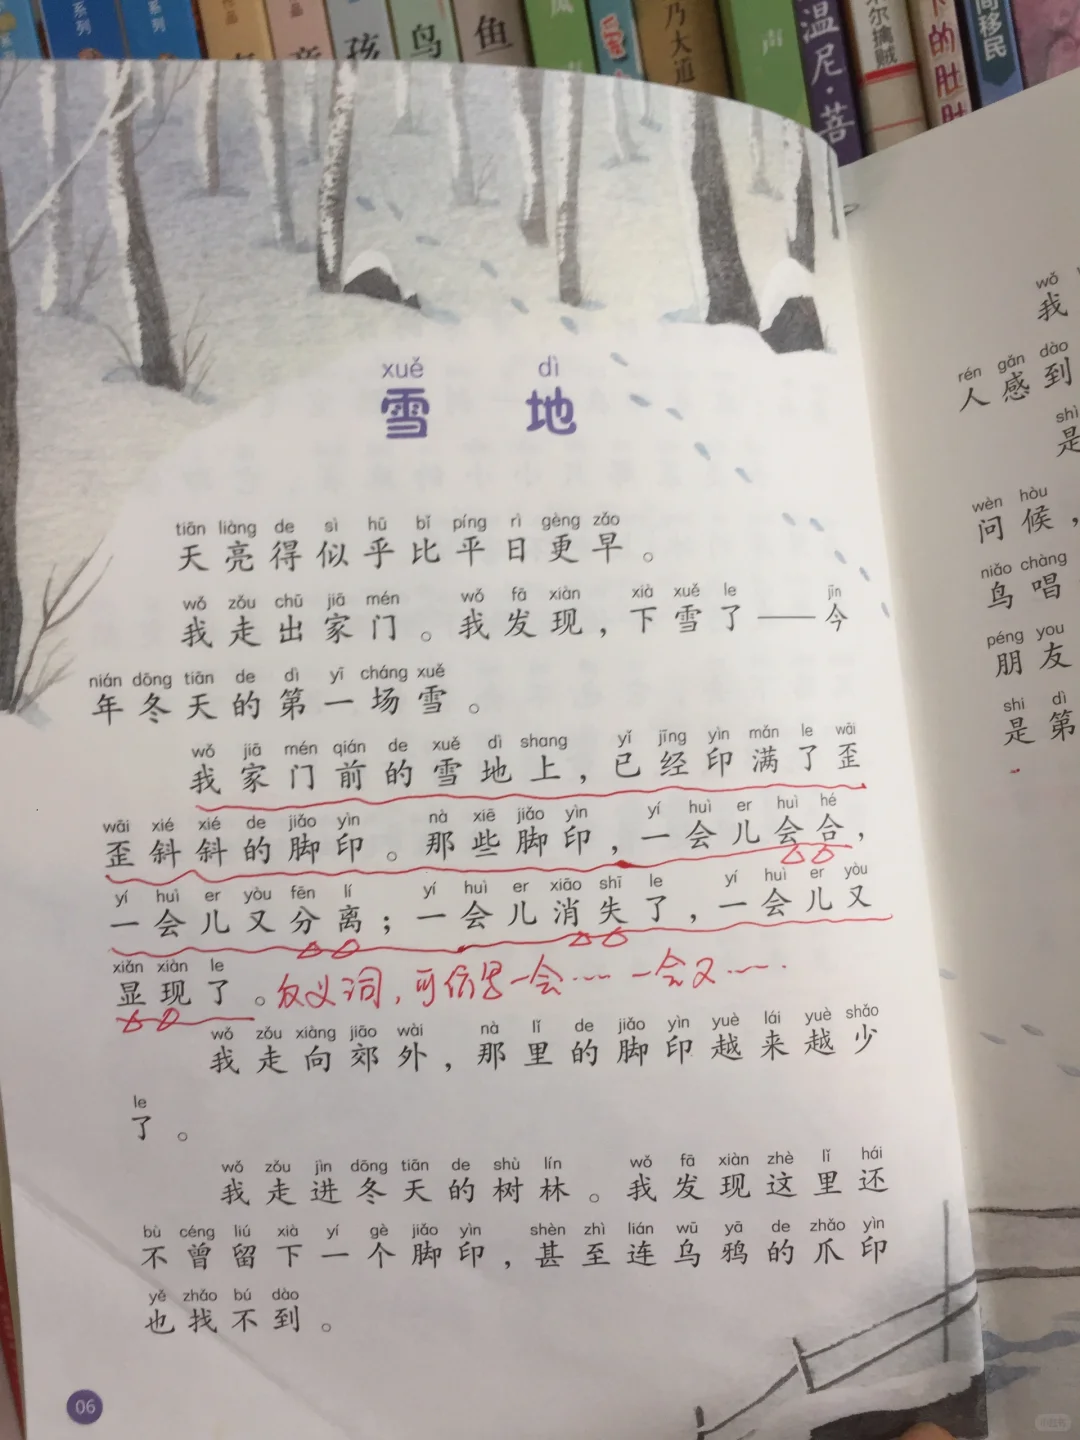 系列
系列
系列
作品
品
孩
鸟
鱼
乃大通
声
温尼·菩
米尔擒贼
的肚肚
间移民
xuě dì
雪地
tiān liàng de sì hū bǐ píng rì gèng zǎo
天亮得似乎比平日更早。
wǒ zǒu chū jiā mén wǒ fā xiàn xià xuě le jīn
我走出家门。我发现，下雪了——今
nián dōng tiān de dì yī cháng xuě
年冬天的第一场雪。
wǒ jiā mén qián de xuě dì shang yǐ jīng yìn mǎn le wāi
我家门前的雪地上，已经印满了歪
wāi xié xié de jiǎo yìn nà xiē jiǎo yìn yí huì er huì hé
歪斜斜的脚印。那些脚印，一会儿会合，
yí huì er yòu fēn lí yí huì er xiāo shī le yí huì er yòu
一会儿又分离；一会儿消失了，一会儿又
xiǎn xiàn le
显现了。反义词，可仿写一会…… 一会又……．
wǒ zǒu xiàng jiāo wài nà lǐ de jiǎo yìn yuè lái yuè shǎo
我走向郊外，那里的脚印越来越少
le
了。
wǒ zǒu jìn dōng tiān de shù lín wǒ fā xiàn zhè lǐ hái
我走进冬天的树林。我发现这里还
bù céng liú xià yí gè jiǎo yìn shèn zhì lián wū yā de zhǎo yìn
不曾留下一个脚印，甚至连乌鸦的爪印
yě zhǎo bú dào
也找不到。
06
wǒ
我
rén gǎn dào
人感到
shì
是
wèn hòu
问候，
niǎo chàng
鸟唱
péng you
朋友
shì dì
是第
小红书